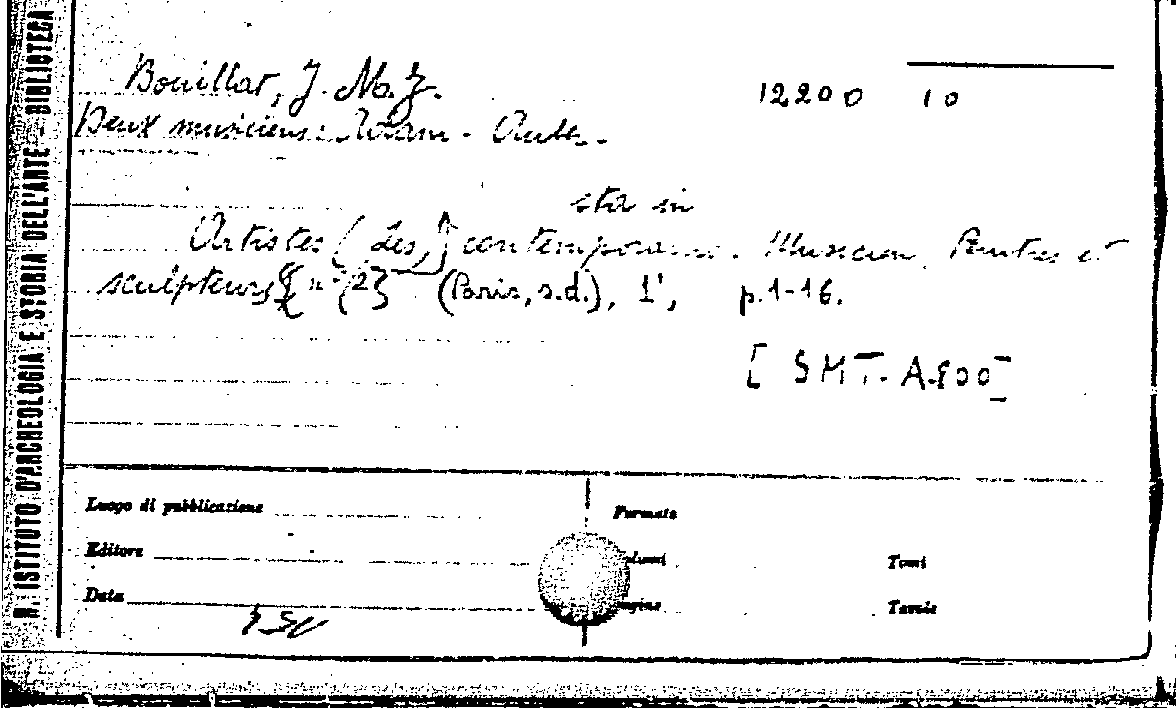 R. ISTITUTO D'ARCHEOLOGIA E STORIA DELL'ARTE - BIBLIOTECA
Bouillat, J. M. J.
12200 10
Deux musiciens: Adam - Auber.
sta in
Artistes (Les) contemporains. Musiciens, Peintres et
sculpteurs [n° 12] (Paris, s.d.), 1', p. 1-16.
[SMT. A.800]
Luogo di pubblicazione
Formato
Editore
Volumi
Tomi
Data
Pagine
Tavole